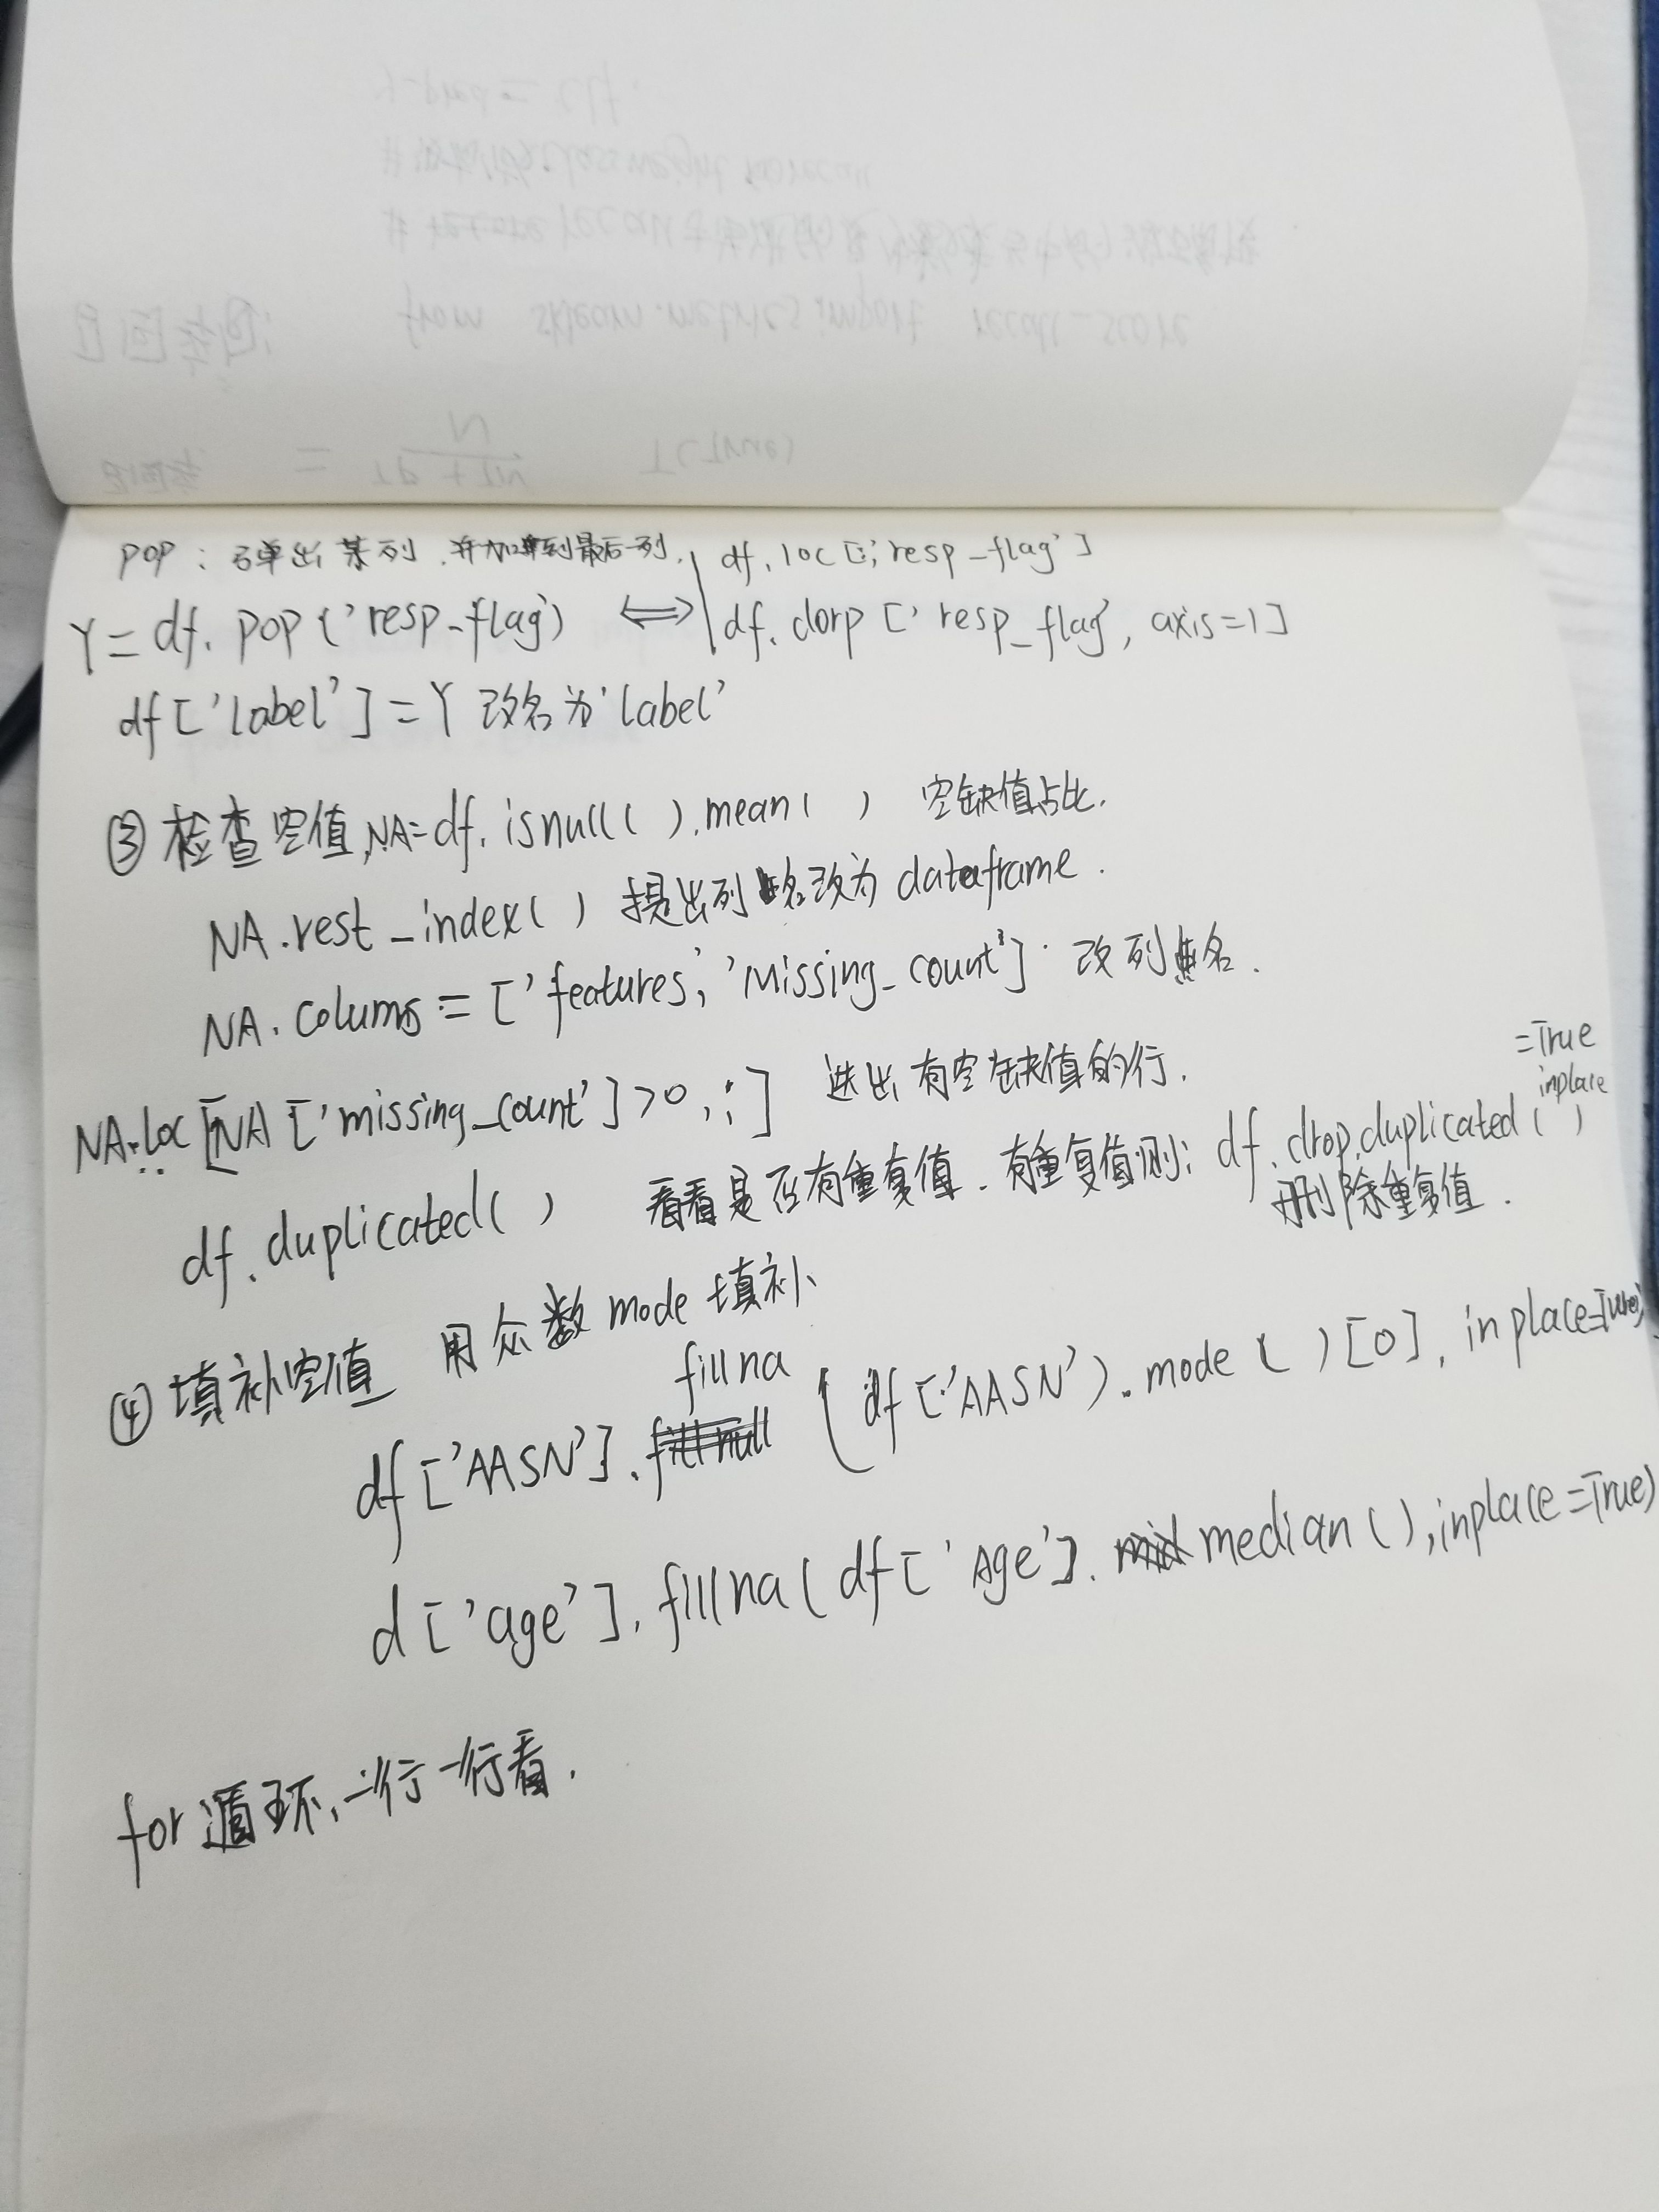 POP：弹出某列，并加到最后一列. df.loc[:,'resp_flag']
Y = df.pop('resp_flag') ⟺ df.dorp['resp_flag', axis=1]
df['label'] = Y 改名为'label'
③ 检查空值, NA=df.isnull().mean() 空缺值占比.
NA.rest_index() 提出列名改为dataframe.
NA.colums = ['features', 'Missing_count'] 改列名.
NA.loc[NA['missing_count']>0,:] 选出有空缺值的行.
df.duplicated() 看看是否有重复值. 有重复值则: df.drop.duplicated(inplace=True)
删除重复值.
④ 填补空值 用众数mode填补
df['AASN'].fillna(df['AASN').mode()[0], inplace=True)
d['age'].fillna(df['Age'].median(),inplace=True)
for循环,一行一行看.